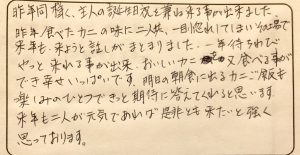 昨年同様、主人の誕生日祝を兼ね来る事が出来ました。
昨年食べたカニの味に二人共、一目惚れてしまいその場で
来年も来ようと話しがまとまりました。一年待ちわび
やっと来れる事が出来、おいしいカニ 又食べる事が
でき幸せいっぱいです。明日の朝食に出るカニご飯も
楽しみのひとつできっと期待に答えてくれると思います
来年も二人が元気であれば是非とも来たいと強く
思っております。